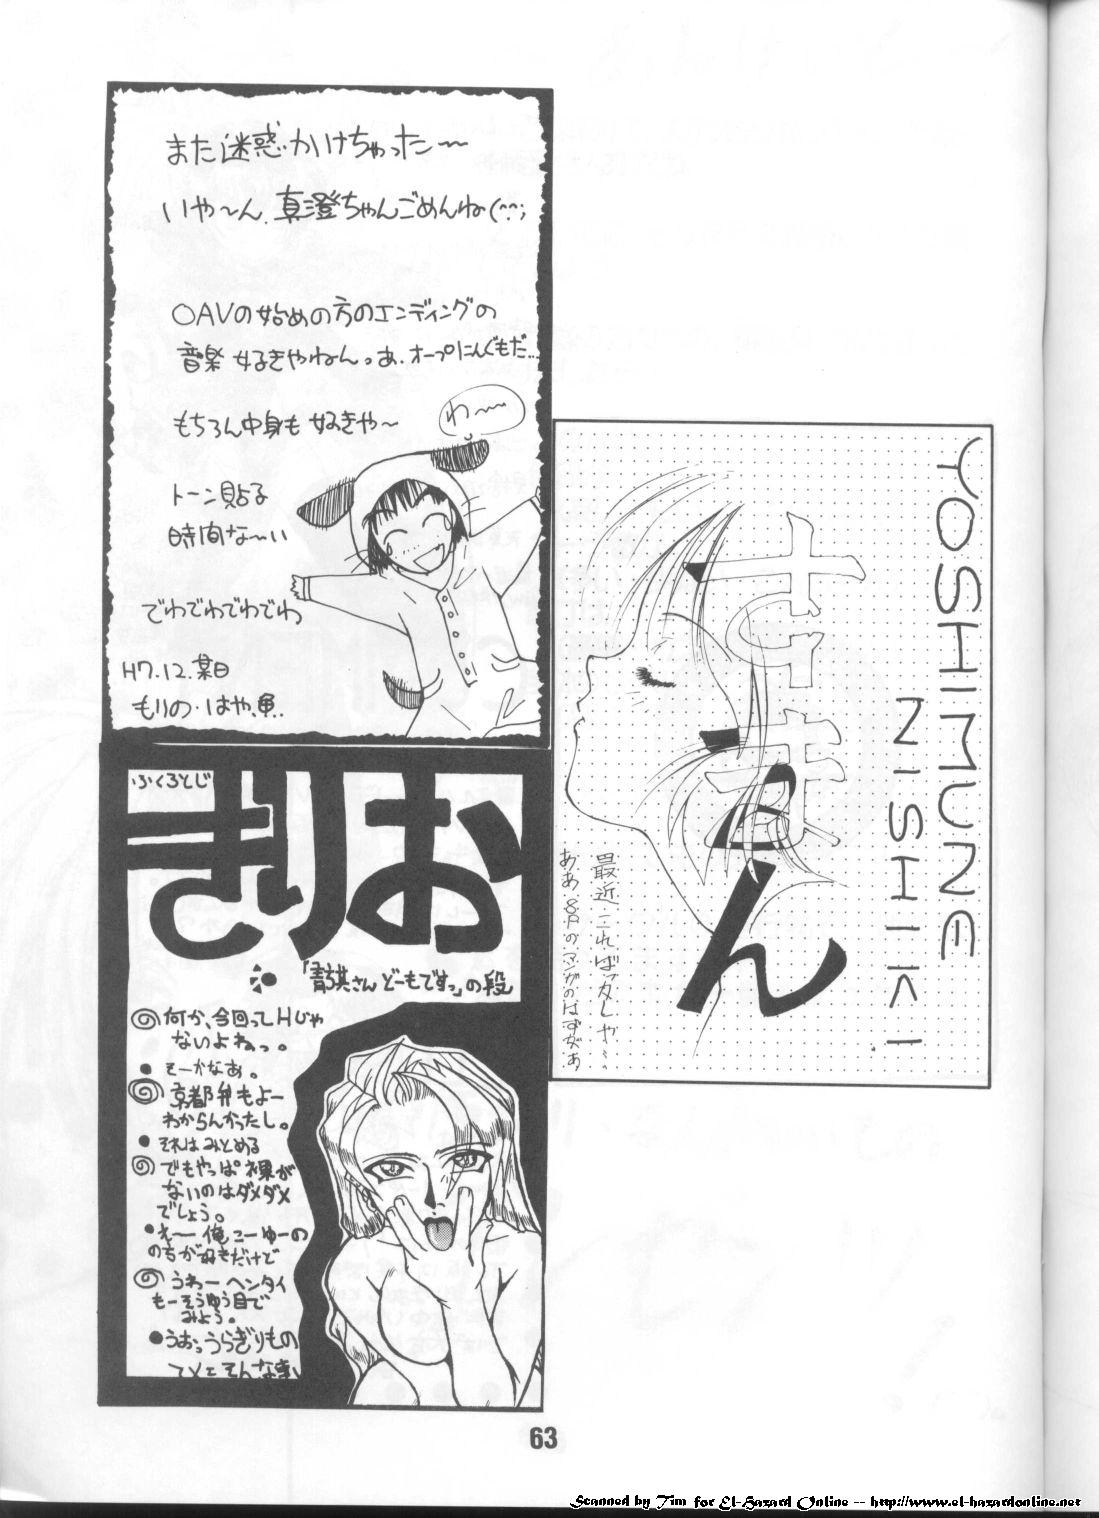 また迷惑かけちゃった〜
いや〜ん、真澄ちゃんごめんね(^^;
OAVの始めの方のエンディングの
音楽 好きやねん。あ、オープにんぐもだ…
もちろん中身も 好きや〜
わ〜
トーン貼る
時間な〜い
でわでわでわでわ
H7.12.某日
もりの・はや
YOSHIMUNE
NISHIKI
すまん
最近こればッカしや…。
ああ、8Pのマンガのはずがぁ
ふくろとじ
きりお
「さん どーもですっ」の段
何か、今回ってHじゃ
ないよねっ。
そーかなあ。
京都弁もよー
わからんかったし。
それはみとめる
でもやっぱ裸が
ないのはダメダメ
でしょう。
え〜 俺こーゆーの
のちが好きだけど
うわー ヘンタイ
もーそうゆう目で
みよう。
うおっうらぎりもの
そんな事
63
Scanned by Tim for El-Hazard Online -- http://www.el-hazardonline.net